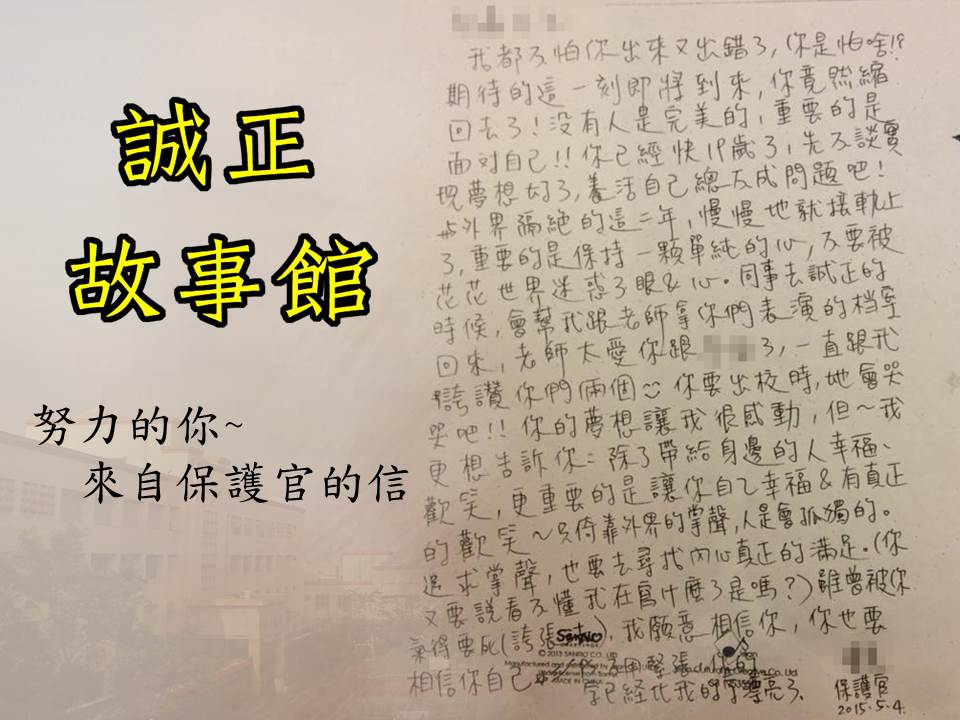 誠正
故事館
努力的你~
來自保護官的信
我都不怕你出來又出錯了,你是怕啥!?
期待的這一刻即將到來,你竟然縮
回去了!沒有人是完美的,重要的是
面對自己!!你已經快19歲了,先不談實
現夢想好了,養活自己總不成問題吧!
與外界隔絕的這二年,慢慢地就接軌上
了,重要的是保持一顆單純的心,不要被
花花世界迷惑了眼&心。同事去誠正的
時候,會幫我跟老師拿你們表演的档案
回來,老師太愛你跟 了,一直跟我
誇讚你們兩個 你要出校時,她會哭
哭吧!!你的夢想讓我很感動,但~我
更想告訴你:除了帶給身邊的人幸福、
歡笑,更重要的是讓你自己幸福&有真正
的歡笑~只倚靠外界的掌聲,人是會孤獨的。
追求掌聲,也要去尋找內心真正的滿足。(你
又要說看不懂我在寫什麼了是嗎?)雖曾被你
氣得要死(誇張 ),我願意相信你,你也要
相信你自己 用緊張,你的
字已經比我的字漂亮了.
SANRIO
© 2013 SANRIO CO., LTD.
MADE IN CHINA
保護官
2015.5.4.